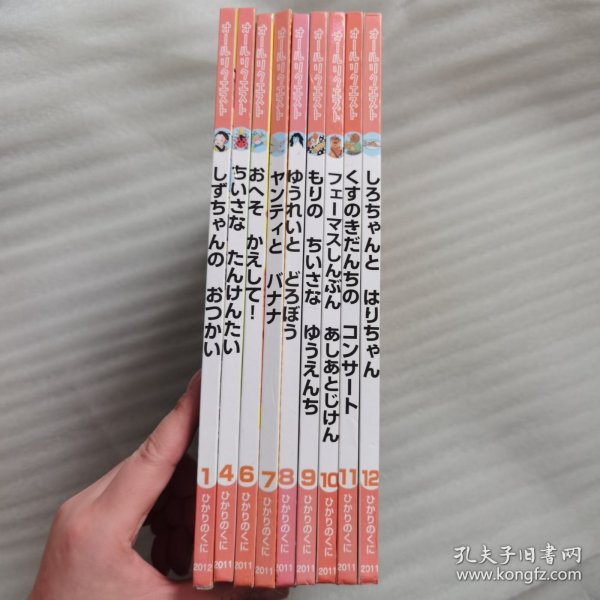 オールリクエスト
しずちゃんの おつかい
1
ひかりのくに
2012
オールリクエスト
ちいさな たんけんたい
4
ひかりのくに
2011
オールリクエスト
おへそ かえして!
6
ひかりのくに
2011
オールリクエスト
ヤンティと バナナ
7
ひかりのくに
2011
オールリクエスト
ゆうれいと どろぼう
8
ひかりのくに
2011
オールリクエスト
もりの ちいさな ゆうえんち
9
ひかりのくに
2011
オールリクエスト
フェーマスしんぶん あしあとじけん
10
ひかりのくに
2011
オールリクエスト
くすのきだんちの コンサート
11
ひかりのくに
2011
オールリクエスト
しろちゃんと はりちゃん
12
ひかりのくに
2011
孔夫子旧书网
www.kongfz.com